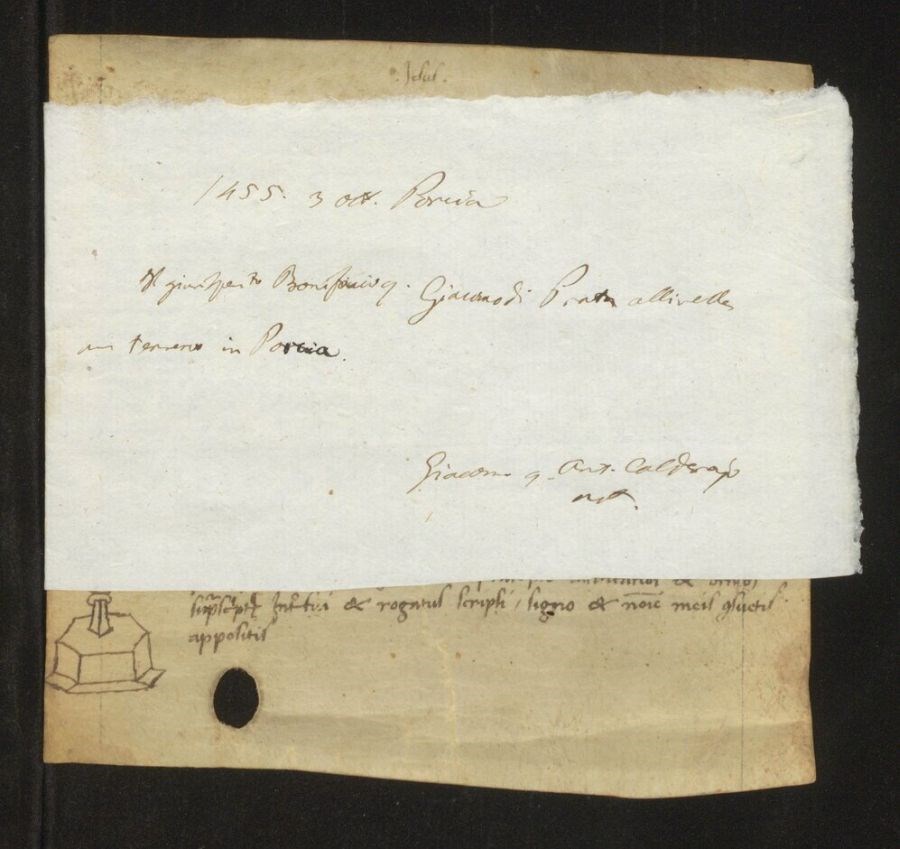 . Jesus .
1455. 3 ott. Porcia
Il giusperito Bonifacio q. Giacomo di Prata allivella
un terreno in Porcia.
Giacomo q. Ant. Calderajo
not.
& omnibus
suprascriptis Interfui & rogatus scripsi, signo & noīe meis ꝯsuetis
appositis